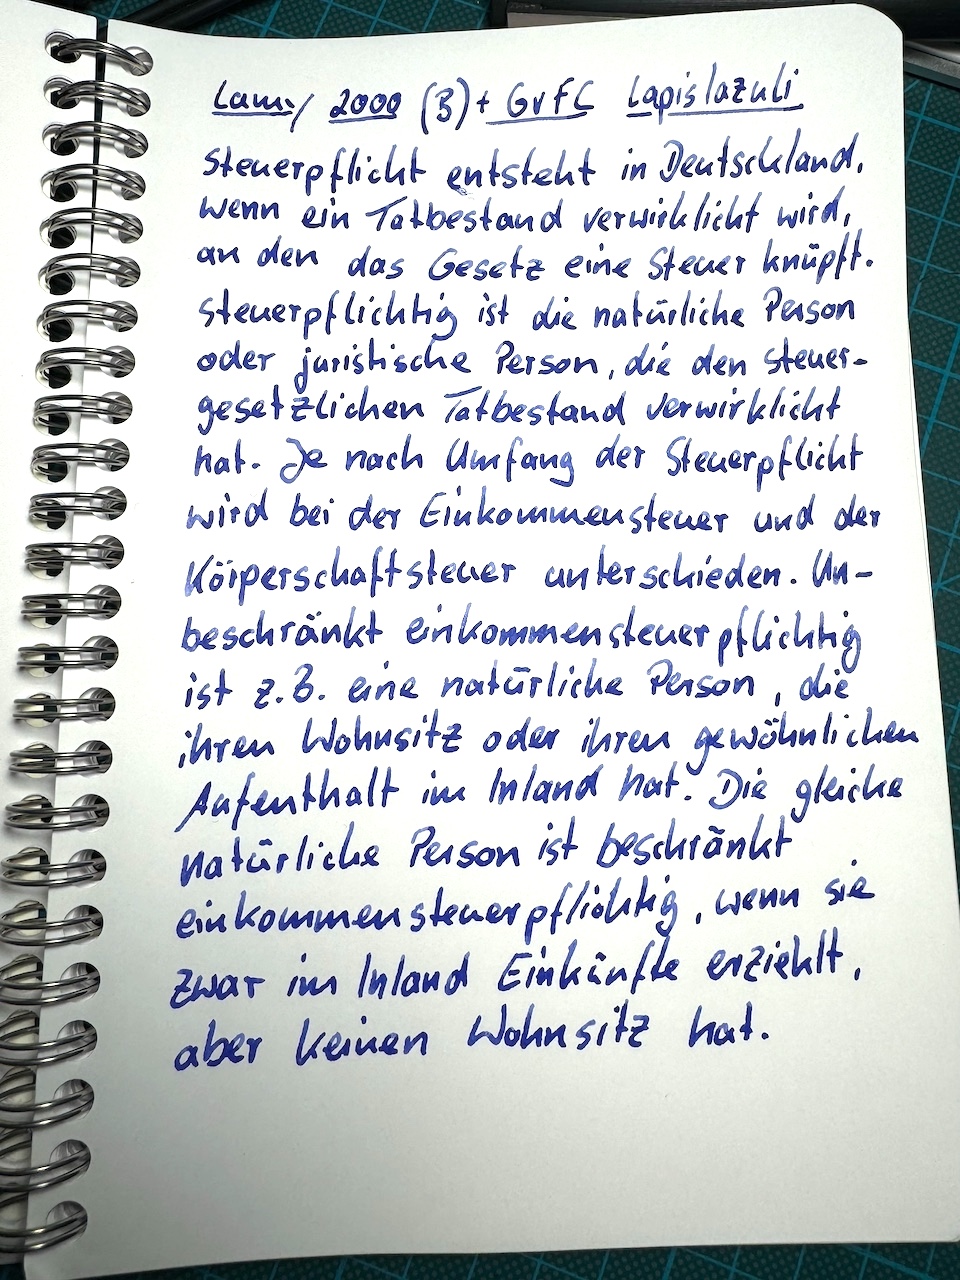 Lamy 2000 (B) + GvFC Lapislazuli
Steuerpflicht entsteht in Deutschland,
wenn ein Tatbestand verwirklicht wird,
an den das Gesetz eine Steuer knüpft.
Steuerpflichtig ist die natürliche Person
oder juristische Person, die den steuer-
gesetzlichen Tatbestand verwirklicht
hat. Je nach Umfang der Steuerpflicht
wird bei der Einkommensteuer und der
Körperschaftsteuer unterschieden. Un-
beschränkt einkommensteuerpflichtig
ist z.B. eine natürliche Person, die
ihren Wohnsitz oder ihren gewöhnlichen
Aufenthalt im Inland hat. Die gleiche
natürliche Person ist beschränkt
einkommensteuerpflichtig, wenn sie
zwar im Inland Einkünfte erziehlt,
aber keinen Wohnsitz hat.